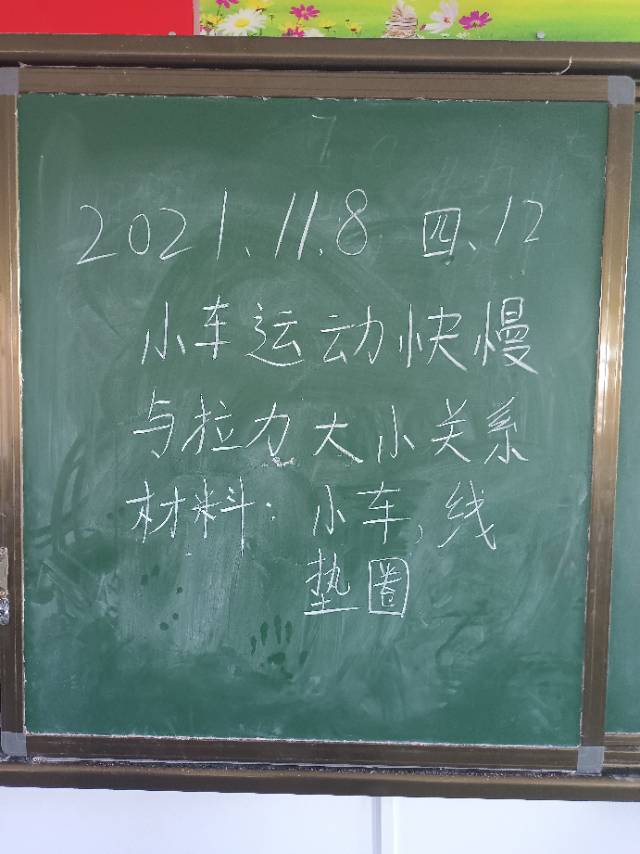 2021.11.8 四、12
小车运动快慢
与拉力大小关系
材料：小车，线
垫圈